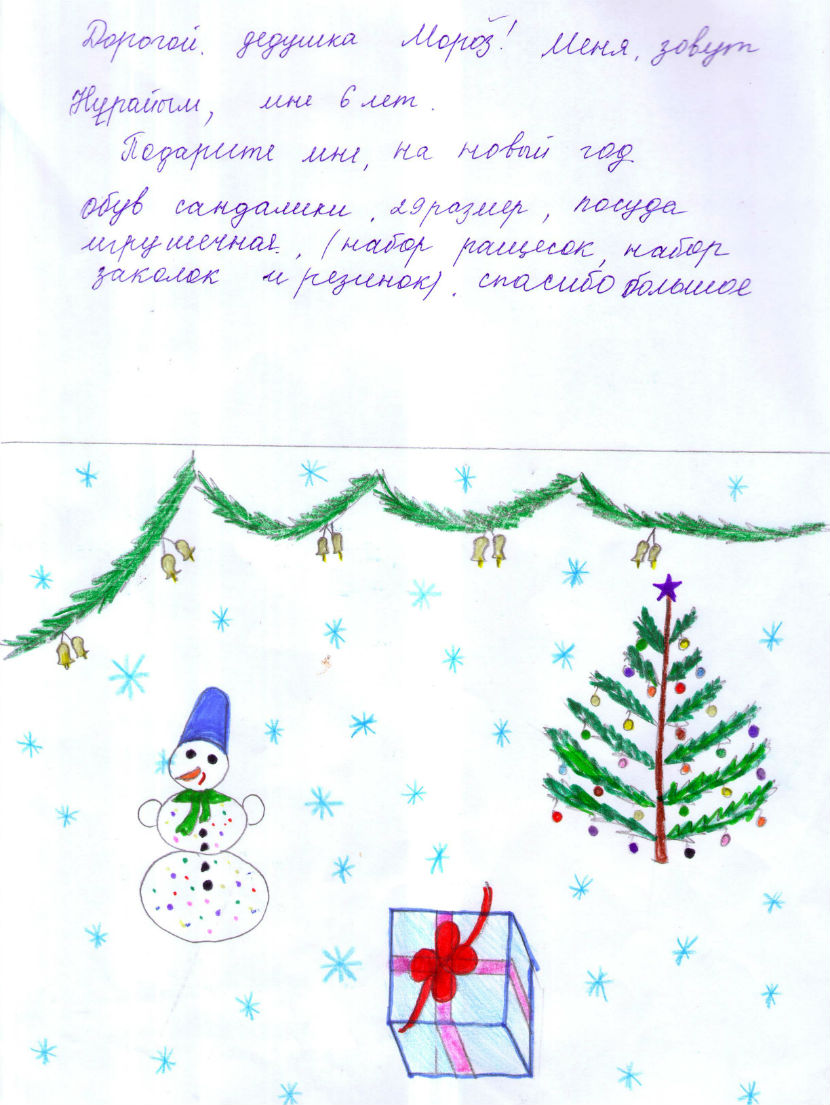 Дорогой. дедушка Мороз! Меня, зовут
Нурайым, мне 6 лет.
Подарите мне, на новый год
обув сандалики, 29 размер, посуда
игрушечная., (набор ращесок, набор
заколок и резинок). спасибо большое